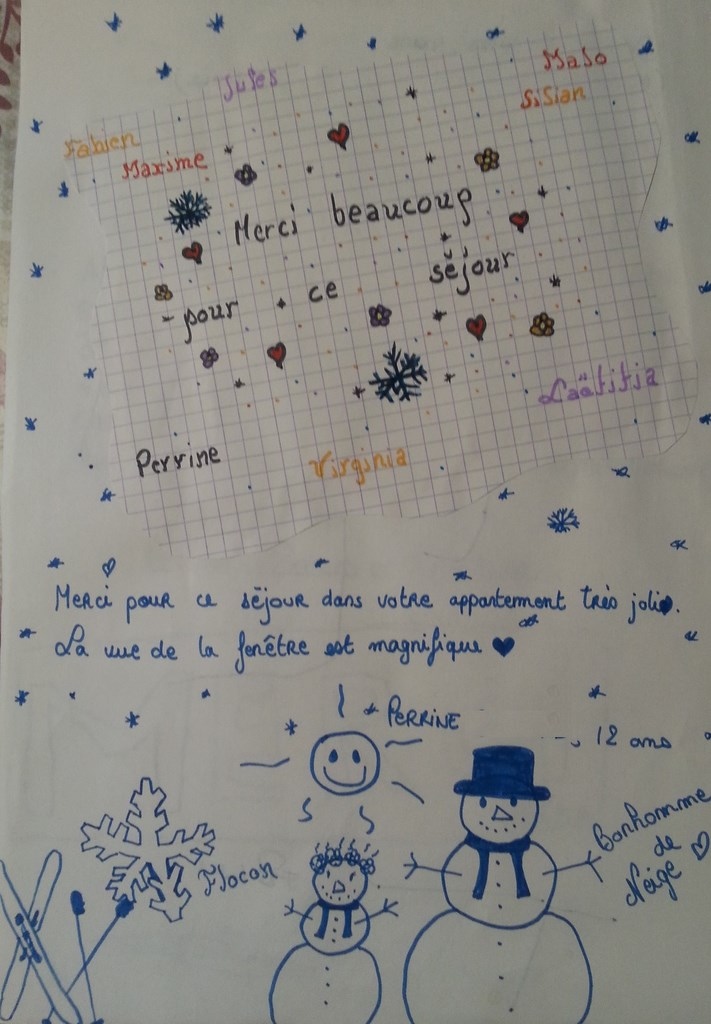 Jules
Malo
Lilian
Fabien
Maxime
Merci beaucoup
pour ce séjour
Laëtitia
Perrine
Virginia
Merci pour ce séjour dans votre appartement très joli.
La vue de la fenêtre est magnifique
PERRINE
12 ans
Flocon
Bonhomme
de
Neige